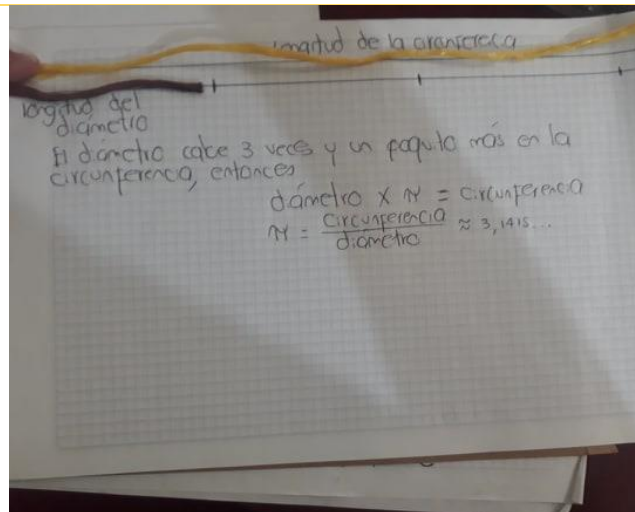 longitud de la circunferencia
longitud del
diámetro
El diámetro cabe 3 veces y un poquito más en la
circunferencia, entonces
diámetro x π = circunferencia
π = circunferencia / diámetro ≈ 3,1415...